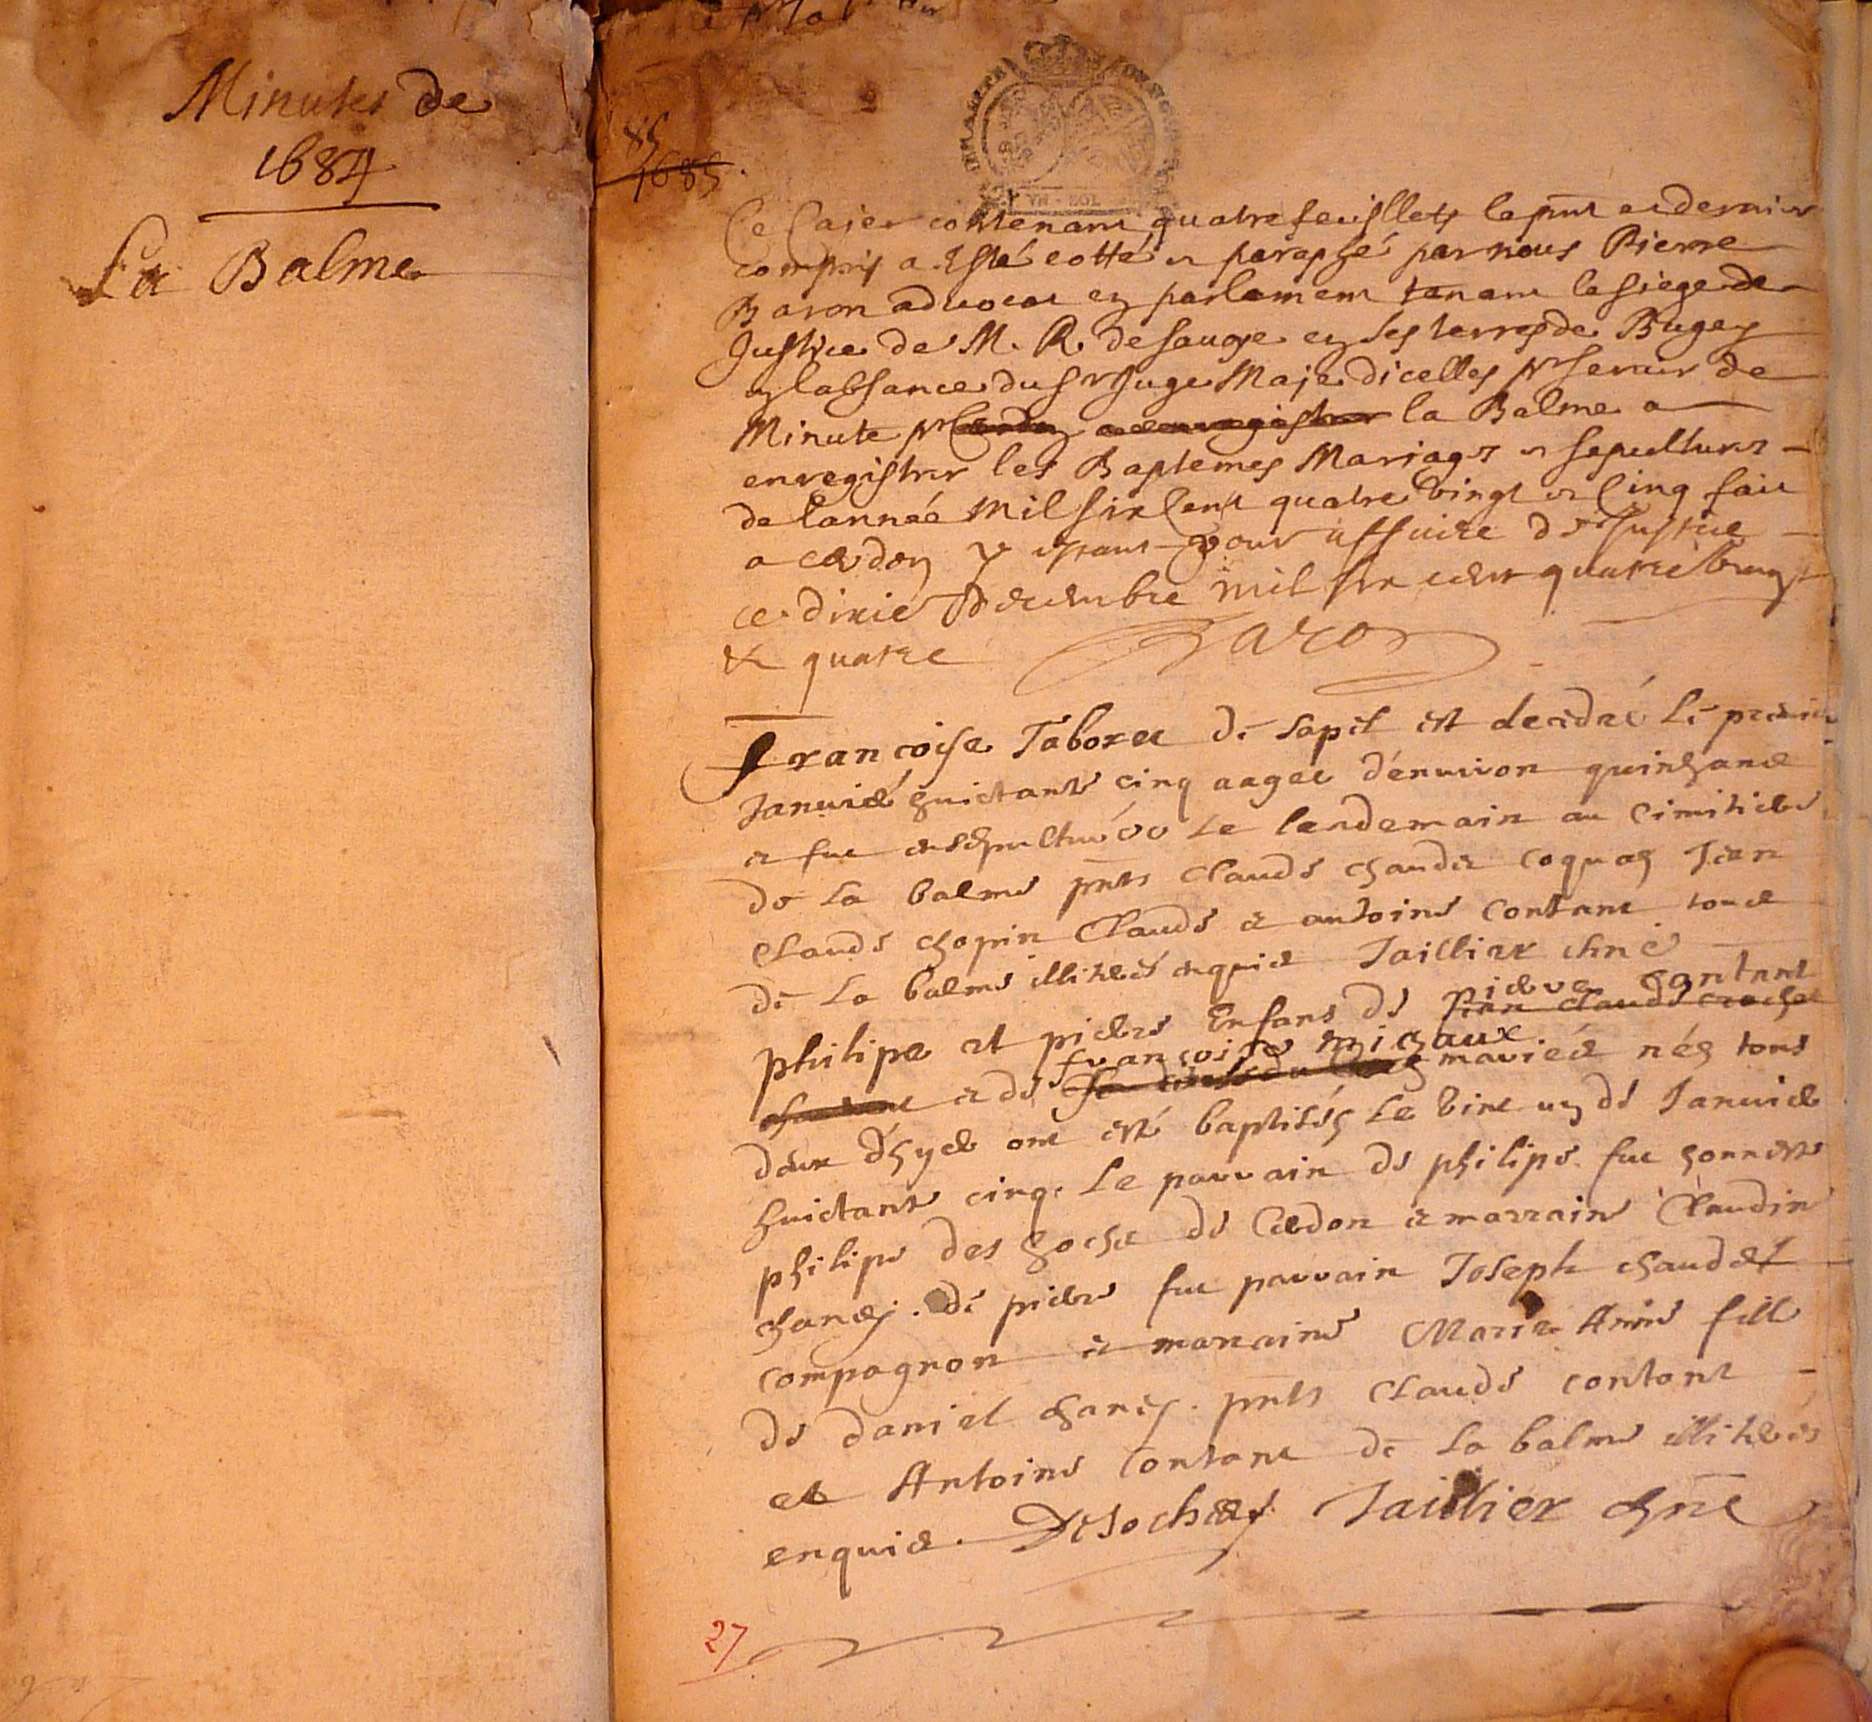 Minutes de
1684
La Balme
85
1685
VN SOL
Ce Caier contenant quatre feuillets le pnt et dernier
compris a Esté cotté et paraphé par nous Pierre
Baron advocat en parlement tenant le siege de
Justice de M. R. de sauoye en ses terres de Bugey
en labsance du sr Juge Maje dicelles pr seruir de
Minute pr Cerdon a enregistrer la Balme a
enregistrer les Baptemes Mariages et sepultures
de Lannée Mil six Cent quatre vingt et Cinq fait
a cerdon y estant pour affaire de Justice
ce dixie Decembre mil six cent quatre vingt
& quatre Baron
Francoise Taboret de Lapel est decedée le premier
Januier huictante cinq aagee d'enuiron quinze ans
et fut ensepulturée Le lendemain au Cimitiere
de La balme pnts Claude chaudet coquas Jean
Claude chopin Claude et antoine Contant tous
de La balme illiteres enquis Taillier
philipe et piere Enfans de Jean claude piere Contant
et de francoise michaux mariés nés tous
deux d'hyer ont esté baptisés Le vint un de Januier
huictante cinq. Le parrain de philipe fut honneste
philipe des hoches de Cerdon et marraine Claudine
chanes. de piere fut parrain Joseph chaudet
compagnon et marraine Marie Anne fille
de daniel chanes. pnts Claude contant
et Antoine Contant de La balme illiteres
enquis. Desoches Taillier
27